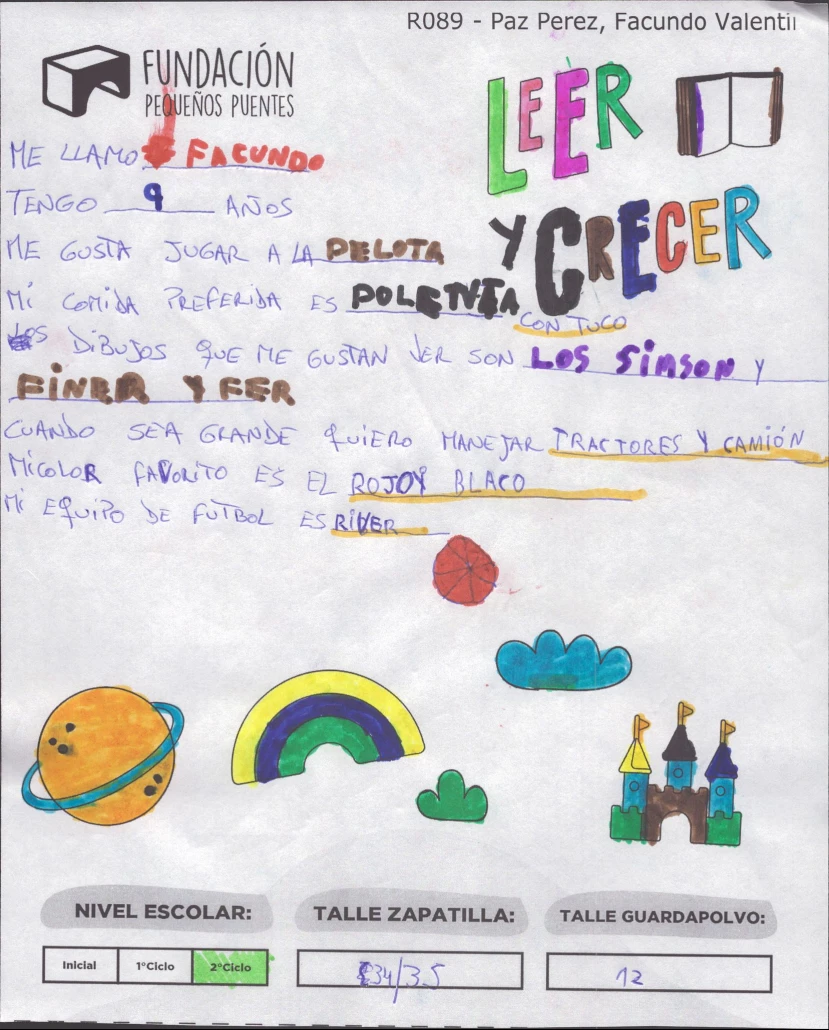 R089 - Paz Perez, Facundo Valentin
FUNDACIÓN
PEQUEÑOS PUENTES
LEER
Y CRECER
ME LLAMO FACUNDO
TENGO 9 AÑOS
ME GUSTA JUGAR A LA PELOTA
MI COMIDA PREFERIDA ES POLENTA
CON TUCO
LOS DIBUJOS QUE ME GUSTAN VER SON LOS SIMSON Y
FINER Y FER
CUANDO SEA GRANDE QUIERO MANEJAR TRACTORES Y CAMIÓN
MI COLOR FAVORITO ES EL ROJO Y BLACO
MI EQUIPO DE FUTBOL ES RIVER
NIVEL ESCOLAR:
TALLE ZAPATILLA:
TALLE GUARDAPOLVO:
Inicial
1°Ciclo
2°Ciclo
34/35
12